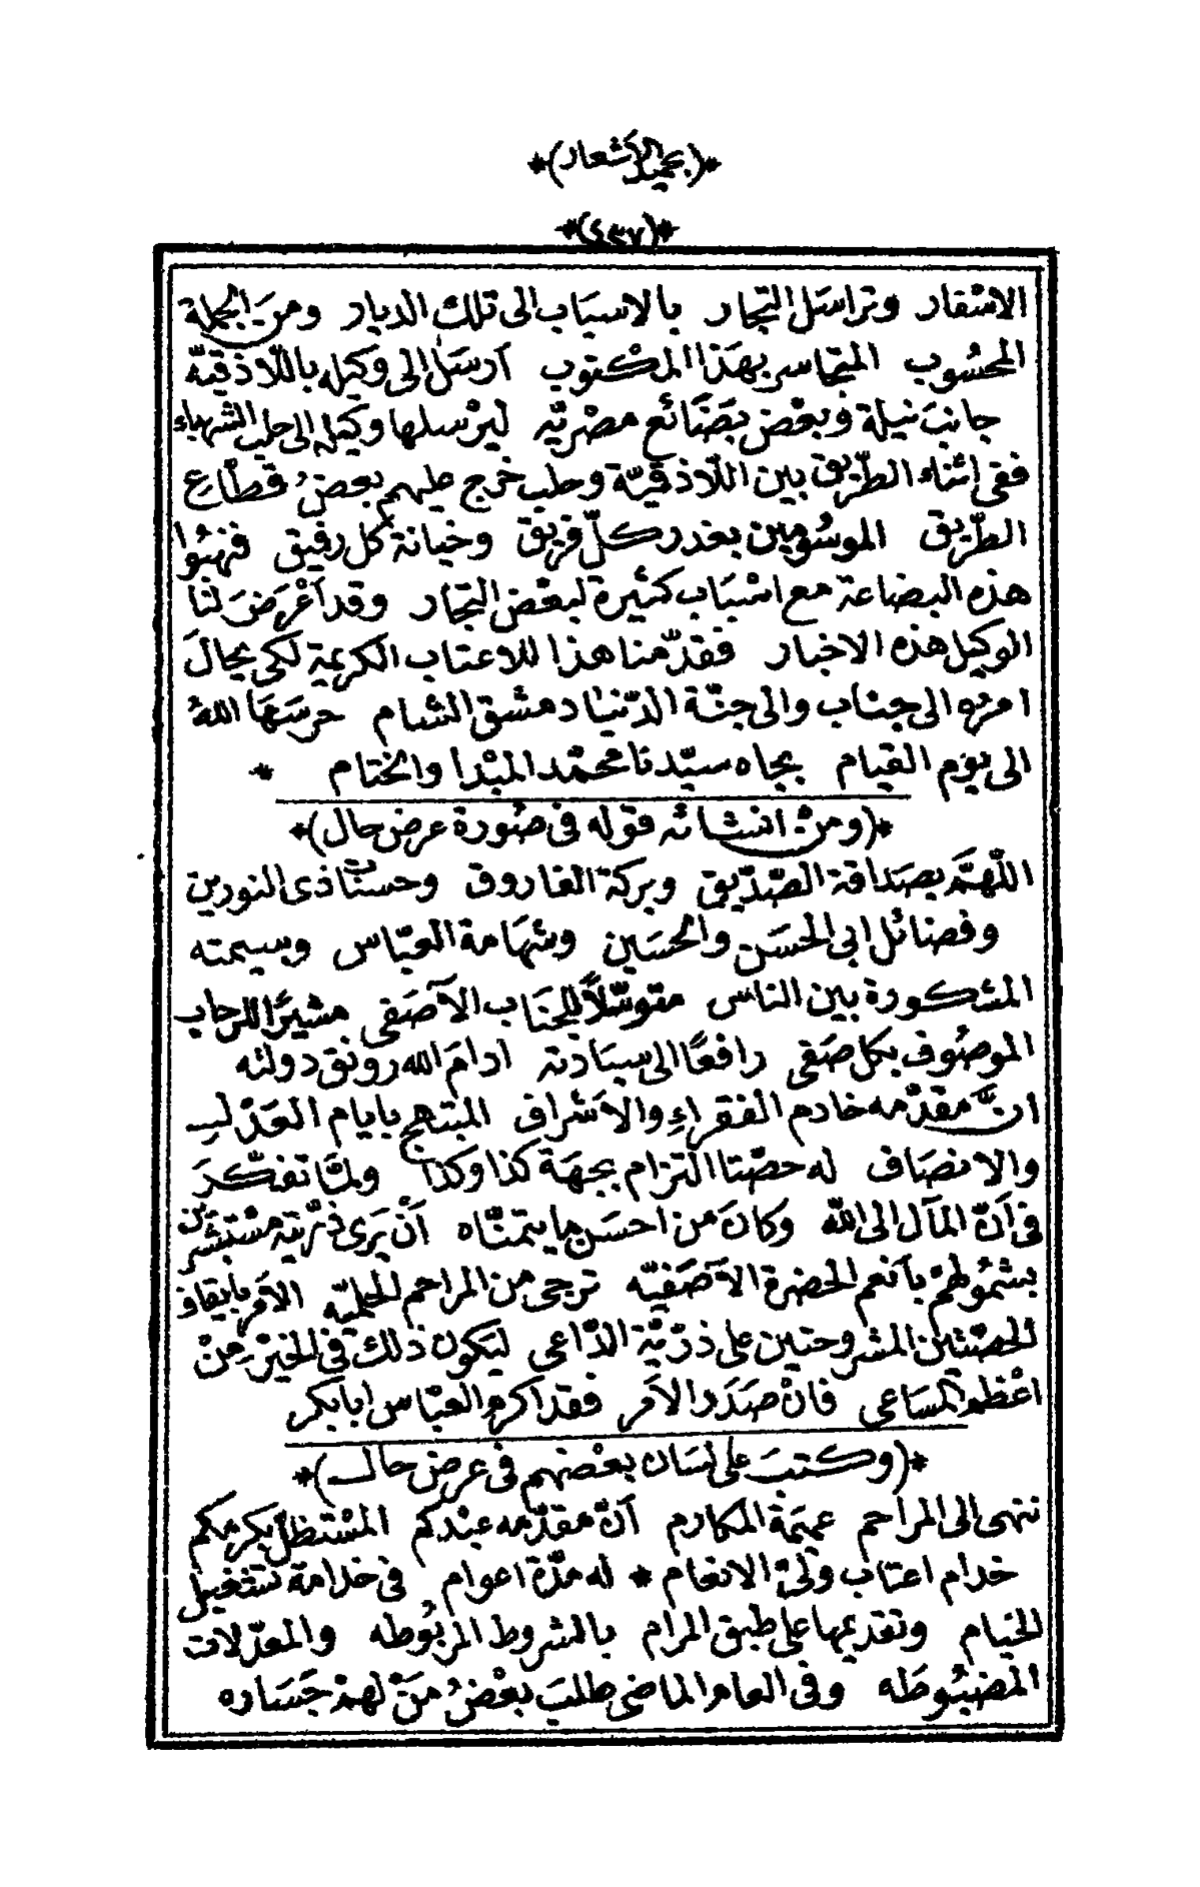 *(بحميد الاشعار)*
*(٤٣٧)*
الاسْفار وتراسَل التجار بالاسبَاب الى تلك الديار ومنَ الجملة
المحسُوب المتجاسر بهَذا المكْتوب اَرسَل الى وكيله باللّاذقيّه
جانبَ نيلة وبعْض بضَائع مصْريّه ليرْسلها وكيله الى حلب الشهباء
ففى اثناء الطّريق بين اللّاذقيّة وحلب خرج عليهم بعضُ قطّاعِ
الطّريق الموسُومين بغدر كلّ فريق وخيانة كل رفيق فنهبُوا
هذه البضاعة مع اسْبَاب كثيرة لبعْض التجار وقد اَعْرَضَ لنا
الوكيل هذه الاخبار فقدّمنا هذا للاعتاب الكريمة لكى يحالَ
امرُه الى جناب والى جنّة الدّنيَا دمشق الشام حرسَهَا اللهُ
الى يوم القيام بجاه سيّدنا محمّد المبْدا والختام *
*(ومنْ انشائه قوله فى صُورة عرض حال)*
اللّهمّ بصَداقة الصّدّيق وبركة الفاروق وحسنات ذى النورين
وفضائل ابى الحسَن والحسَين وشهَامة العبّاس وبسيمته
المشكورة بين الناس متوسّلاً للجنَاب الآصَفى مشيرًا للرحاب
الموصُوف بكل صَفى رافعًا الى سيَادته ادامَ الله رونق دولته
انَّ مقدّمه خادم الفقراءِ والاَشراف المبتهج بايام العَدْل
والانصَاف له حصّتا التزام بجهَة كذا وكذا ولمّا تفكّرَ
فى اَنّ المآل الى الله وكانَ من احسَن ما يتمنّاه اَنْ يَرى ذرّيته مسْتبشرين
بشمُولهمْ بأنعم الحضرة الآصَفيّه ترجى من المراحم الحلميّه الاَمر بايقاف
الحصّتين المشروحتين على ذرّيّة الدّاعى ليَكون ذلك فى الخيْر منْ
اعْظم المسَاعى فانْ صَدَر الاَمر فقد اكرم العبّاس ابابكر
*(وكتبَ على لسَان بعْضهم فى عرض حال)*
ننهى الى المراحم عميمَة المكارم اَنّ مقدّمه عبْدكم المسْتظلّ بكرمكم
خدام اعتاب ولىّ الانعام * له مدّة اعوام فى خدامة تشغيل
الخيام وتقديمها على طبق المرام بالشروط المربُوطه والمعدّلات
المضبُوطَه وفى العام الماضى طلبَ بعْضُ مَنْ لهمْ جَسَاره